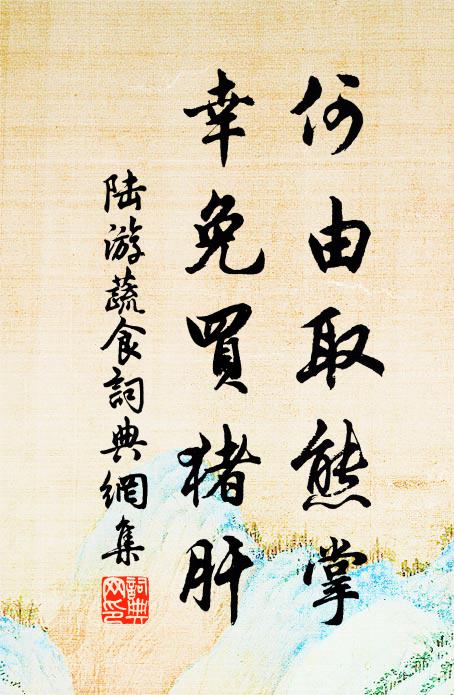 何由取熊掌
幸免買猪肝
陆游蔬食詞典網集
詞典网印